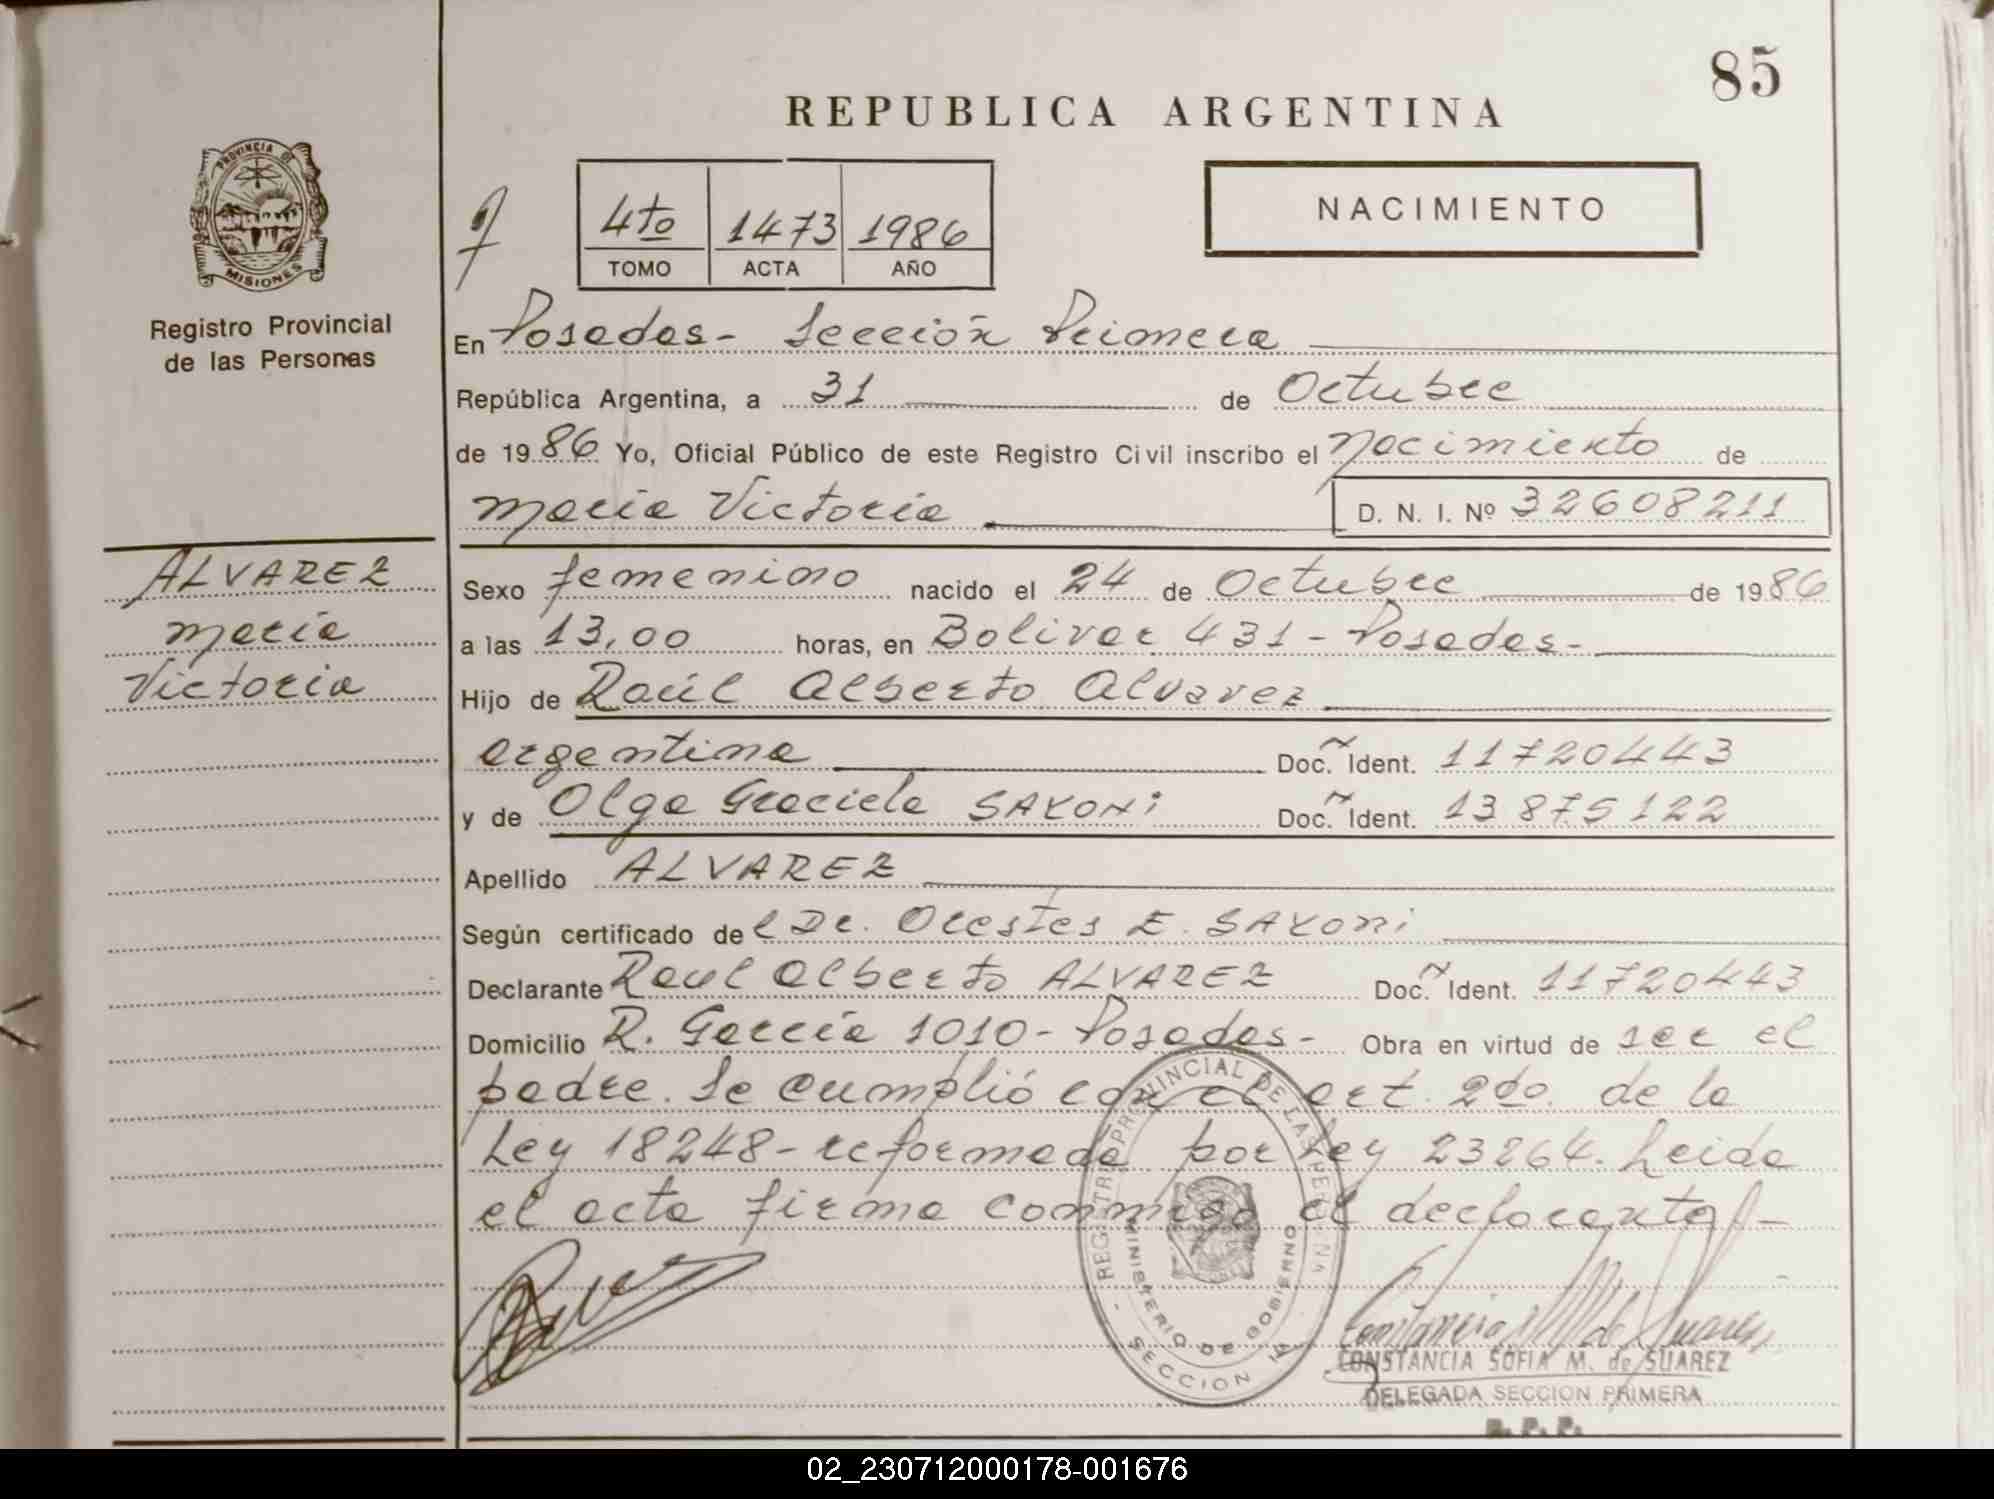 85
REPUBLICA ARGENTINA
PROVINCIA DE
MISIONES
Registro Provincial
de las Personas
4to 1473 1986
TOMO ACTA AÑO
NACIMIENTO
En Posadas - Sección Primera
República Argentina, a 31 de Octubre
de 1986 Yo, Oficial Público de este Registro Civil inscribo el nacimiento de
María Victoria D. N. I. Nº 32608211
ALVAREZ
María
Victoria
Sexo femenino nacido el 24 de Octubre de 1986
a las 13,00 horas, en Bolivar 431 - Posadas -
Hijo de Raúl Alberto Alvarez
argentina Doc. Ident. 11720443
y de Olga Graciela SAXONi Doc. Ident. 13875122
Apellido ALVAREZ
Según certificado del Dr. Orestes E. SAXONi
Declarante Raul Alberto ALVAREZ Doc. Ident. 11720443
Domicilio R. García 1010 - Posadas - Obra en virtud de ser el
padre. Se cumplió con el art. 2do. de la
Ley 18248 - reformada por Ley 23264. Leida
el acta firma conmigo el declarante -
REGISTRO PROVINCIAL DE LAS PERSONAS
MINISTERIO DE GOBIERNO
SECCION 1a
CONSTANCIA SOFIA M. de SUAREZ
DELEGADA SECCION PRIMERA
R. P. P.
02_230712000178-001676